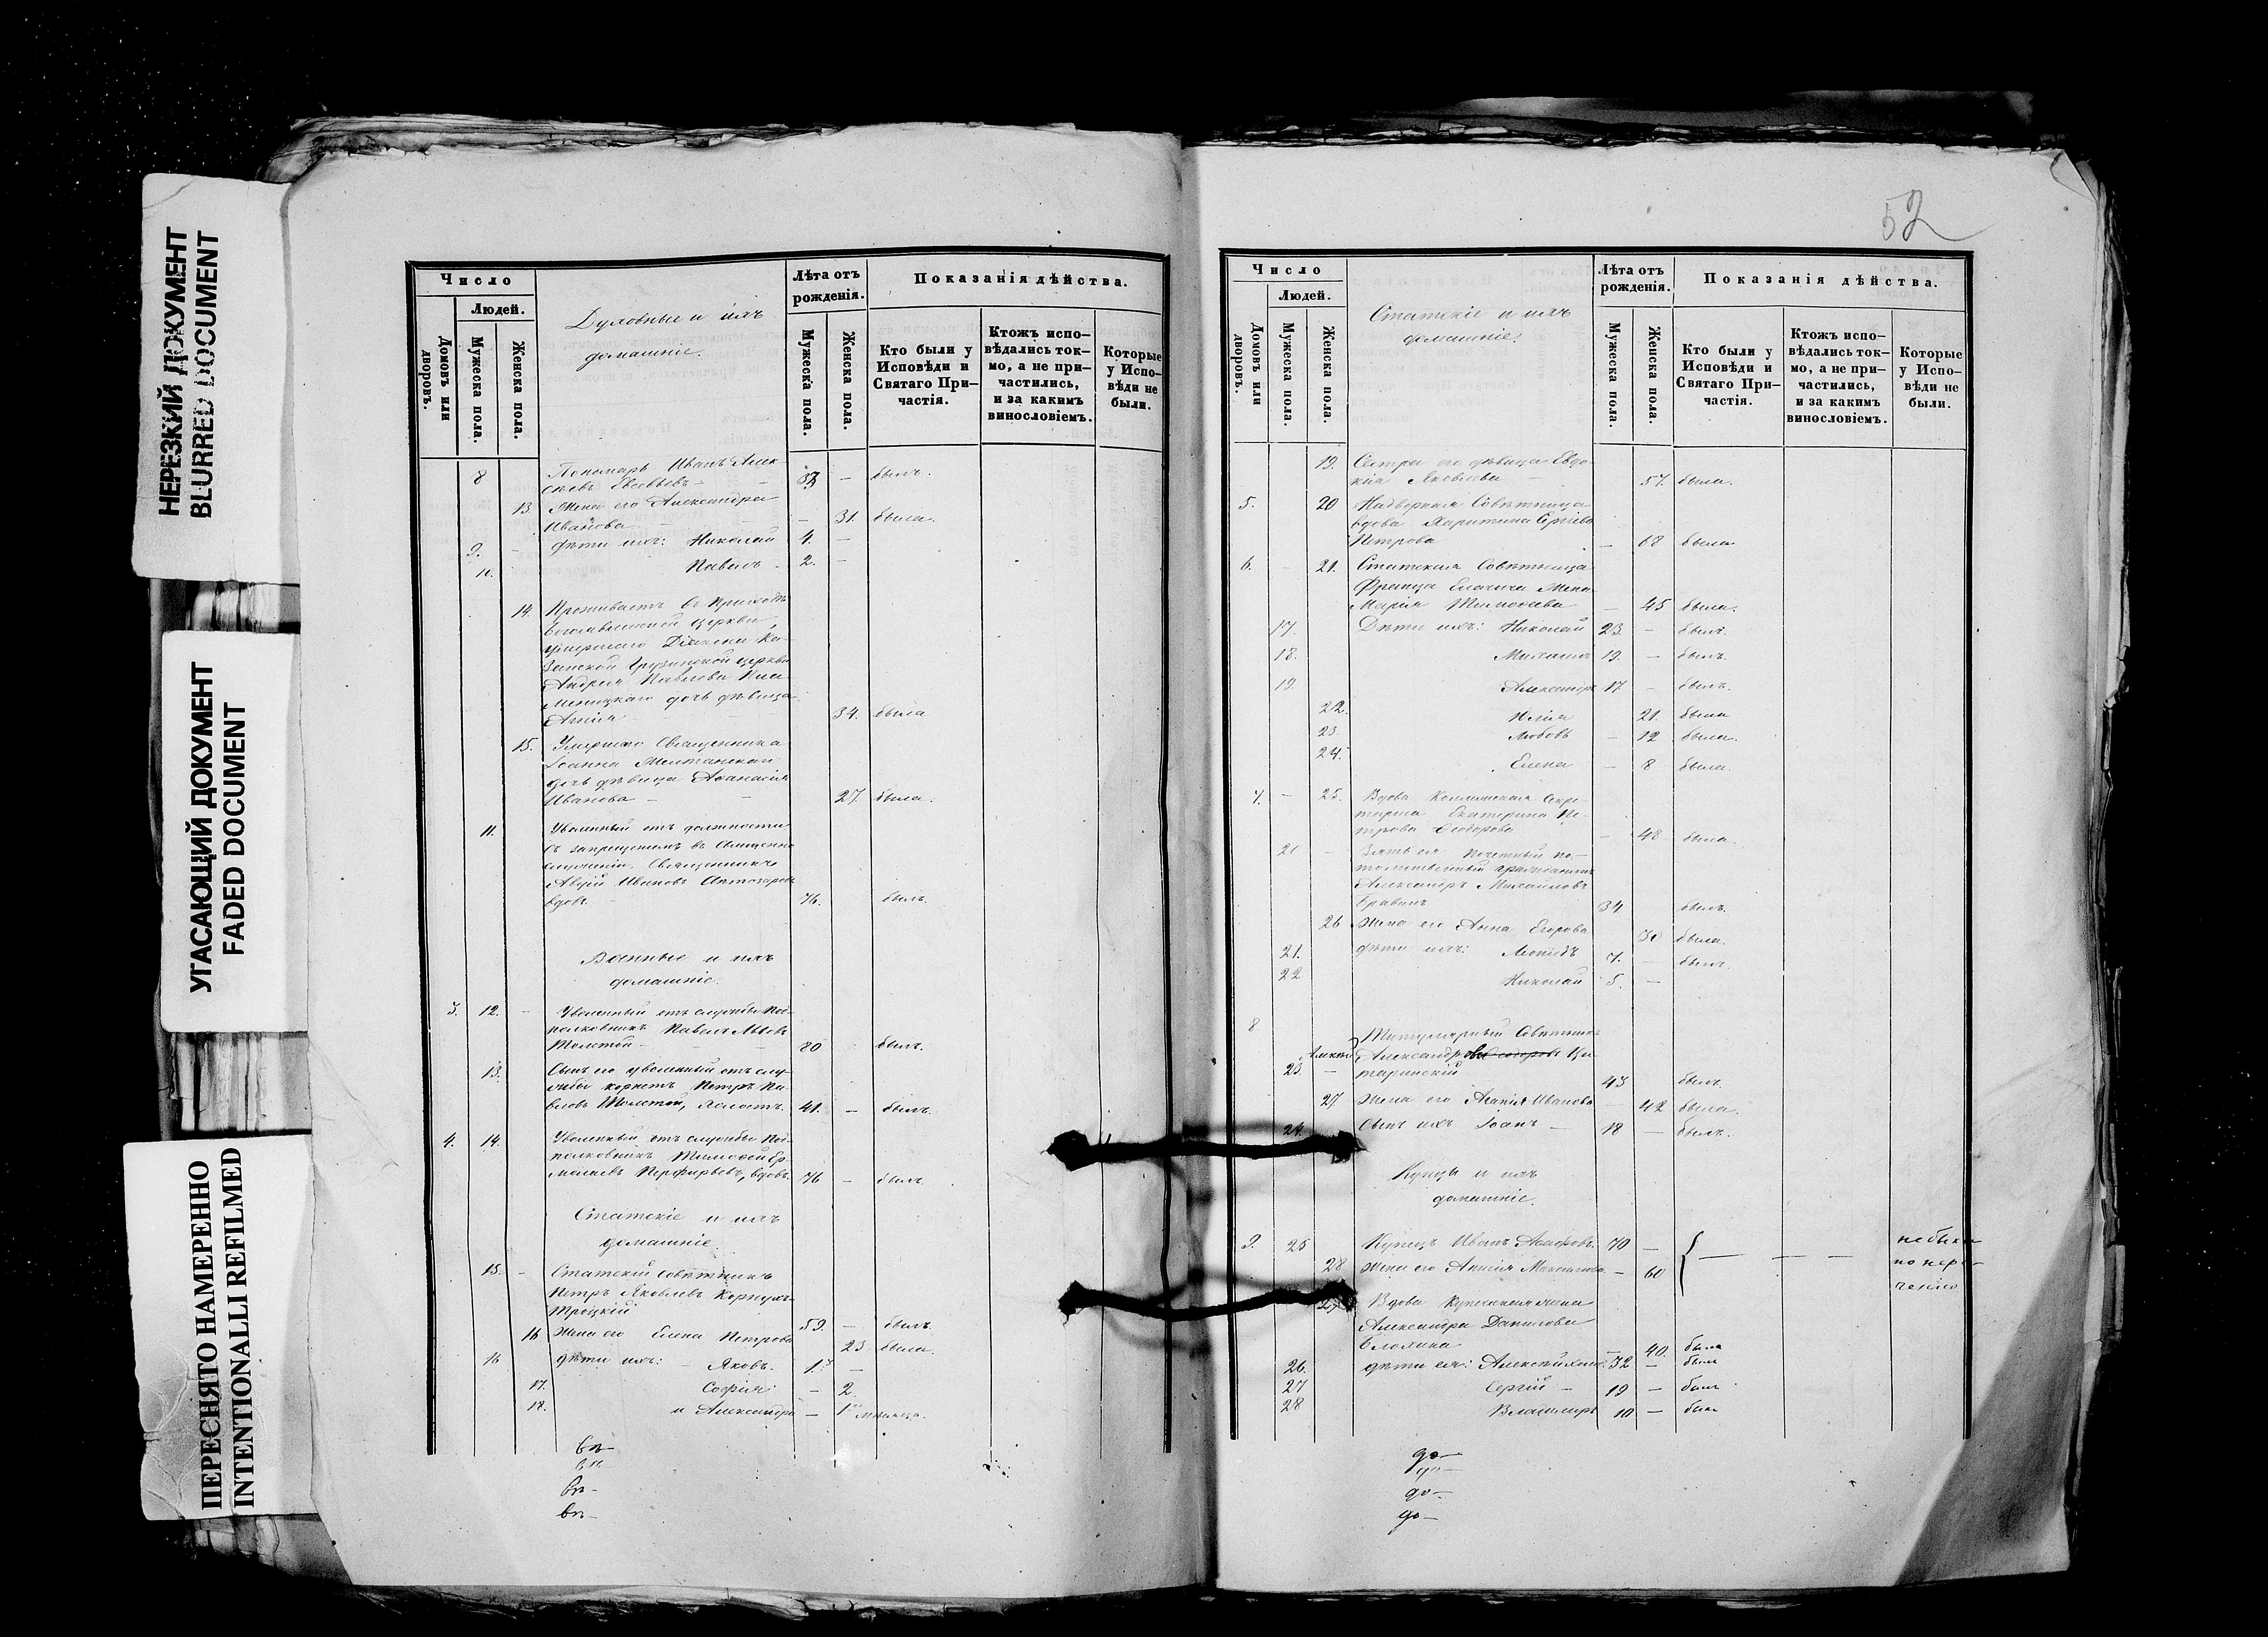 НЕРЕЗКИЙ ДОКУМЕНТ
BLURRED DOCUMENT
УГАСАЮЩИЙ ДОКУМЕНТ
FADED DOCUMENT
ПЕРЕСНЯТО НАМЕРЕННО
INTENTIONALLI REFILMED
Число
Людей.
Домовъ или дворовъ.
Мужеска пола.
Женска пола.
Духовные и ихъ
домашніе.
Лѣта отъ
рожденія.
Мужеска пола.
Женска пола.
Показанія дѣйства.
Кто были у
Исповѣди и
Святаго При-
частія.
Ктожъ испо-
вѣдались ток-
мо, а не при-
частились,
и за какимъ
винословіемъ.
Которые
у Испо-
вѣди не
были.
8 Пономарь Иванъ Алек-
сѣевъ Евсевьевъ — былъ.
13. Жена его Александра
Иванова — 31. была.
9. дѣти ихъ: Николай 4. —
10. Павелъ 2. —
14. Проживаетъ въ приходѣ
Богоявленской церкви
умершаго Діакона Ка-
занской Грузинской церкви
Андрея Павлова
дочь дѣвица
34. была
15. Умершаго Священника
Іоанна
дочь дѣвица Аѳанасія
Иванова — 27. была.
11. Уволенный отъ должности
съ запрещеніемъ въ священно
служеніи Священникъ
Авдій Ивановъ
вдовъ. 76. былъ.
Военные и ихъ
домашніе.
3. 12. — Уволенный отъ службы Под-
полковникъ Павелъ Львовъ
Толстой — 80 былъ.
13. Сынъ его уволенный отъ слу-
жбы корнетъ Петръ Па-
вловъ Толстой, холостъ. 41. — былъ.
4. 14. Уволенный отъ службы Под-
полковникъ Тимофей Ер-
молаевъ Перфирьевъ, вдовъ. 76 — былъ.
Статскіе и ихъ
домашніе
15. — Статскій совѣтникъ
Петръ Яковлевъ Корнухъ-
Троцкій 59. — былъ.
16 Жена его Елена Петрова 23 была.
16 дѣти ихъ: — Яковъ. —
17. Софія — 2.
18. и Александра —
въ—
въ—
въ—
въ—
52
Число
Людей.
Домовъ или дворовъ.
Мужеска пола.
Женска пола.
Статскіе и ихъ
домашніе.
Лѣта отъ
рожденія.
Мужеска пола.
Женска пола.
Показанія дѣйства.
Кто были у
Исповѣди и
Святаго При-
частія.
Ктожъ испо-
вѣдались ток-
мо, а не при-
частились,
и за какимъ
винословіемъ.
Которые
у Испо-
вѣди не
были.
19. Сестра его дѣвица Евдо-
кія Яковлева — 57. была.
5. 20 Надворная Совѣтница
вдова Харитина Сергѣева
Петрова — 68 была
6. — 21. Статскаго Совѣтника
Франца Елачича жена
Марія Тимоѳеева — 45 была.
17. Дѣти ихъ: Николай 23. — былъ.
18. Михаилъ 19. — былъ.
19. Александръ 17 — былъ.
22. Юлія 21. была
23. Любовь — 12 была.
24. Елена — 8 была.
7. — 25. Вдова Коллежская Секре-
тарша Екатерина Пе-
трова Ѳеодорова — 48 была.
20 — Зять ея Почетный по-
томственный гражданинъ
Александръ Михайловъ
34 былъ.
26 Жена его Анна Егорова 30 была.
21. дѣти ихъ: Леонидъ 7. — былъ.
22 Николай 5. —
8 Титулярный Совѣтникъ
Александръ
23. — 43 былъ.
27. Жена его Агапія Иванова — 42 была.
24. Сынъ ихъ Іоанъ — 18 — былъ.
Купцы и ихъ
домашніе.
9. 25 Купецъ Иванъ 70 — не были
28 Жена его Анисія Максимова — 60 — — — по нера-
ченію
Вдова Купеческая жена
Александра Данилова
40. была
26. дѣти ея: Алексѣй 32 — былъ
27 Сергій — 19 — былъ
28 Владимиръ 10 — былъ
до—
до—
до—
до—